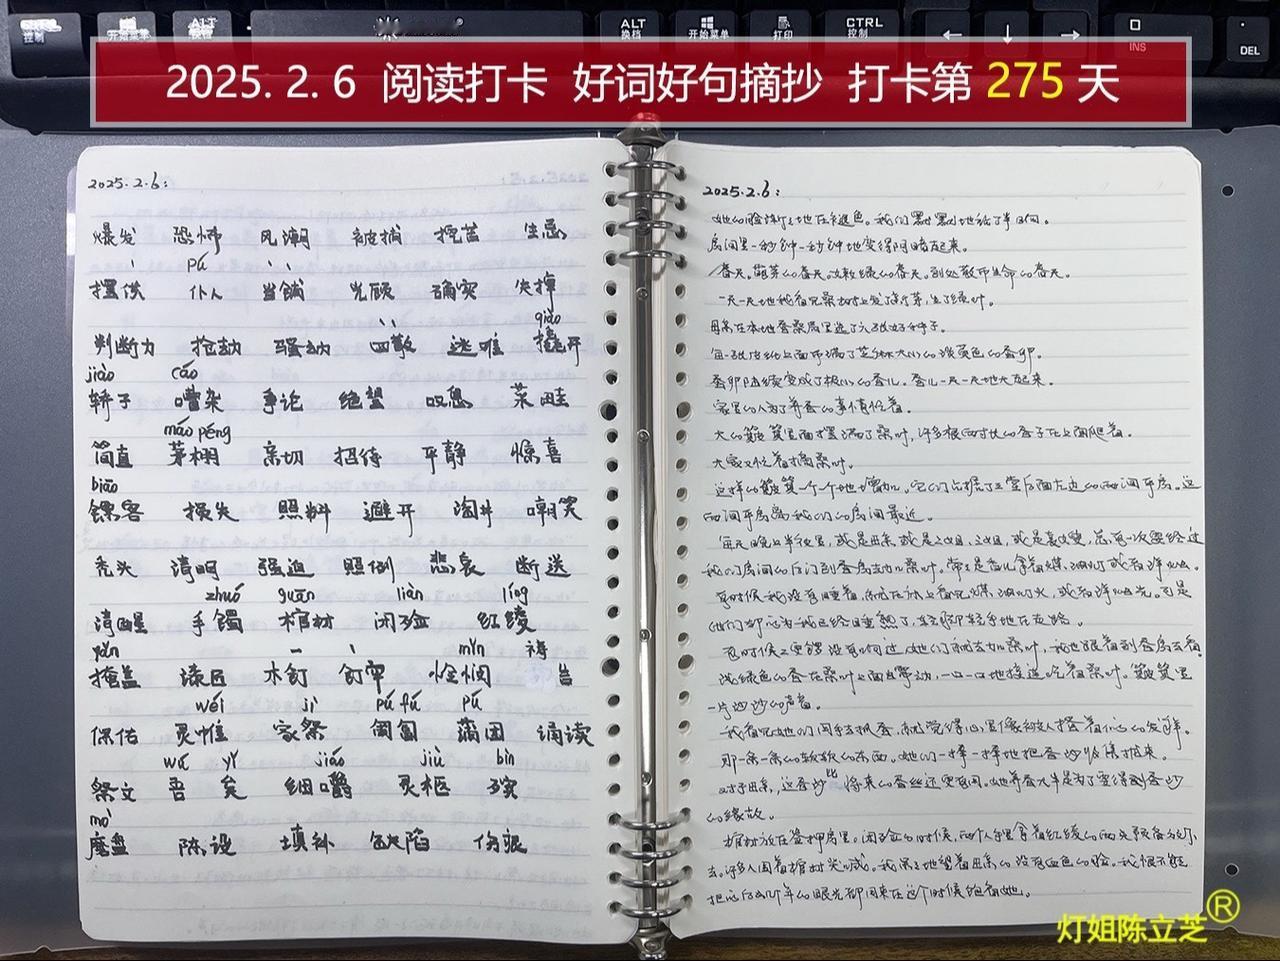 控制
开始菜单
ALT
换档
ALT
换档
开始菜单
打印
CTRL
控制
INS
DEL
2025. 2. 6 阅读打卡 好词好句摘抄 打卡第 275 天
2025.2.6:
爆发 恐怖 风潮 被捕 挖苦 生息
pú
摆供 仆人 当铺 光顾 确实 失掉
qiào
判断力 抢劫 骚动 四散 逃难 撬开
jiào cáo
轿子 嘈杂 争论 绝望 叹息 菜畦
máo péng
简直 茅棚 亲切 招待 平静 惊喜
biāo
镖客 损失 照料 避开 淘井 嘲笑
秃头 清明 强迫 照例 悲哀 断送
zhuó guān liàn líng
清醒 手镯 棺材 闭殓 红绫
yǎn mǐn 祷
掩盖 漆匠 木钉 钉牢 怜悯 告
wéi jì pú fú pú
保佑 灵帷 家祭 匍匐 蒲团 诵读
wú yǐ jiáo jiù bìn
祭文 吾 矣 细嚼 灵柩 殡
mò
磨盘 陈设 填补 缺陷 伤痕
2025.2.6:
她的脸渐渐地在褪色。我们默默地话了半日间。
房间里一秒钟一秒钟地变得阴暗起来。
春天。萌芽的春天。嫩绿的春天。到处散布生命的春天。
一天一天地我看见桑树上发了新芽,生了绿叶。
母亲在本地蚕桑局里选了六张好种子。
每一张皮纸上面布满了芝麻大小的淡黄色的蚕卵。
蚕卵陆续变成了极小的蚕儿。蚕儿一天一天地大起来。
家里的人为了养蚕的事情忙着。
大的簸箕里面摆满了桑叶,许多根两寸长的蚕子在上面爬着。
大家又忙着摘桑叶。
这样的簸箕一个一个地增加。它们占据了三堂后面左边的两间平房。这
两间平房离我们的房间最近。
每天晚上半夜里,或是母亲或是二姐,三姐,或是袁嫂,总有一次要经过
我们房间的后门到蚕房去加桑叶。常常是香儿拿着煤油灯或者洋烛。
有时候我没有睡着,就在床上看见煤油灯火,或者洋烛光。可是
她们却以为我已经睡熟了,轻脚轻手地在走路。
有时候二更锣没有响过,她们就去加桑叶,我也跟着到蚕房去看。
浅绿色的蚕在桑叶上面蠕动,一口一口地接连吃着桑叶。簸箕里
一片沙沙的声音。
我看见她们用手去抓蚕,就觉得心里像被人搔着似的发痒。
那一条一条的软软的东西。她们一捧一捧地把蚕沙收集拢来。
对于母亲,这蚕沙比将来的蚕丝还更有用。她养蚕大半是为了要得到蚕沙
的缘故。
棺材放在签押房里。闭殓的时候,两个人手里拿着红绫的两头预备放下
去。许多人围着棺材哭喊。我呆呆地望着母亲的没有血色的脸。我恨不能
把以后几十年的眼光都用来在这个时候饱看她。
灯姐陈立芝®